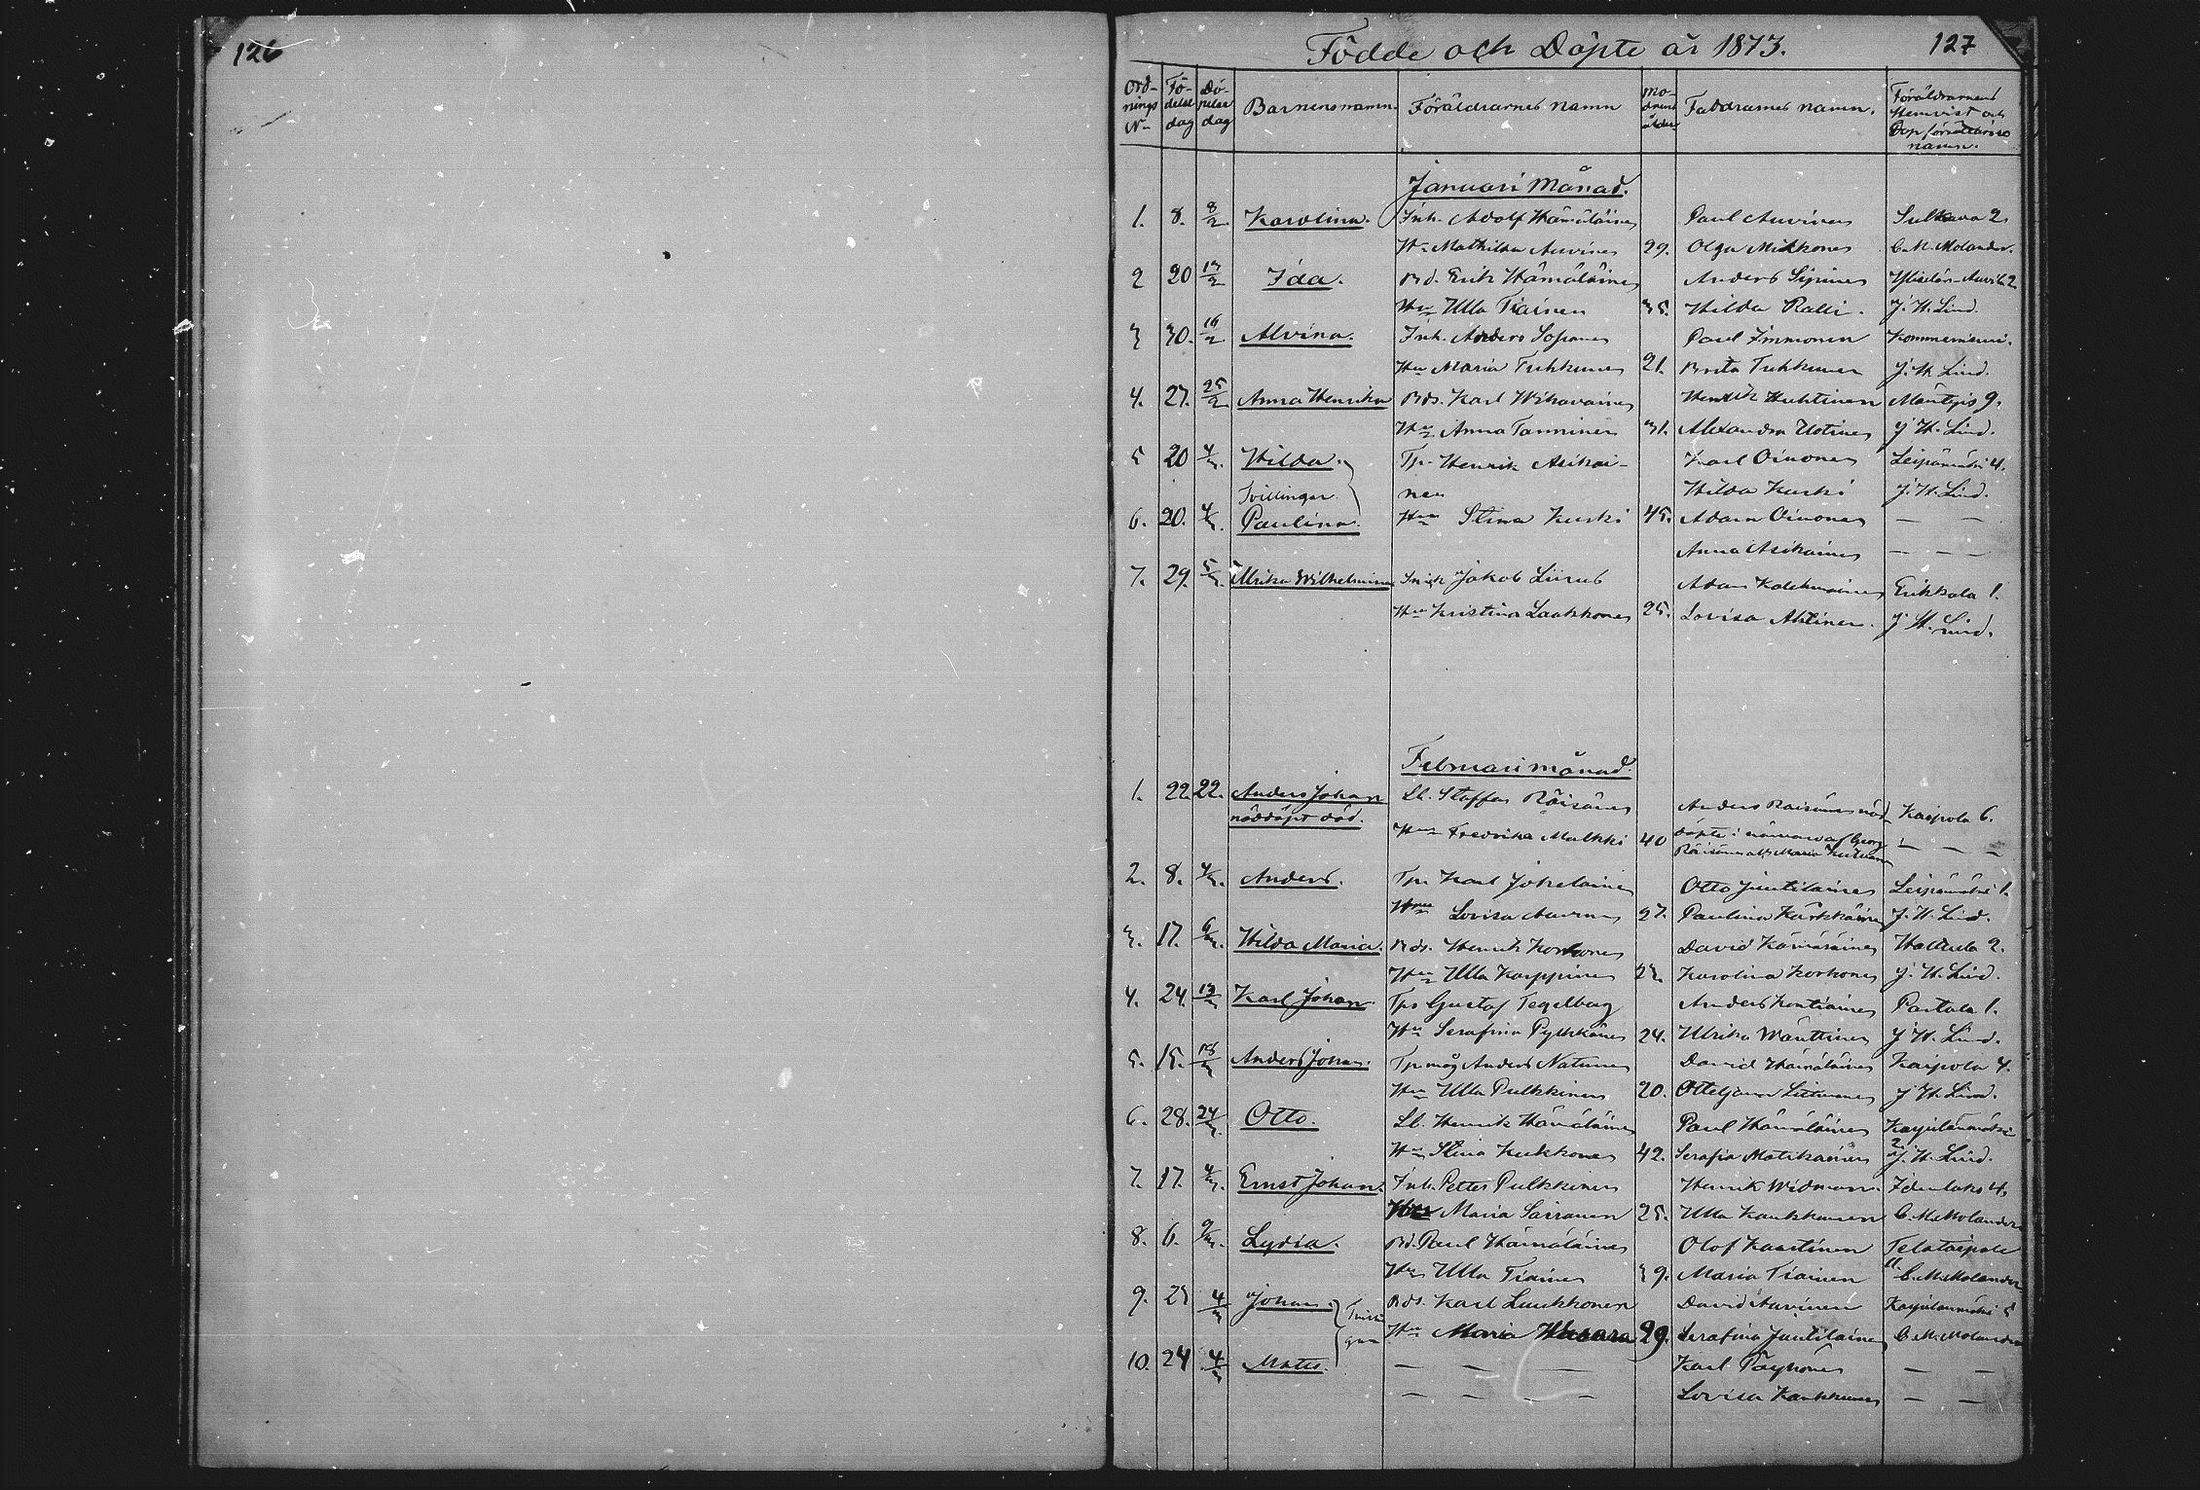 126
Födde och Döpte år 1873. 127
Ord-nings N- Fö-delse dag Dö-pelse dag Barnens namn. Föräldrarnes namn Mo-drens ålder Faddrarnes namn. Föräldrarnes Hemvist och Dopförrättares namn.
Januari Månad.
1. 8. 8/2 Karolina. Inh. Adolf Hämäläinen Paul Auvinen Sulkava 2
Hu Mathilda Auvinen 29. Olga Mikkonen C. M. Molander.
2 20 13/2 Ida. Bd. Erik Hämäläinen Anders
Hu Ulla Tiainen 35. Hilda Ralli. J. H. Lind.
3 30. 16/2 Alvina. Inh. Anders Paul Immonen Kommerniemi.
Hu Maria Tuhkunen 21. Brita Tuhkunen J. H. Lind.
4. 27. 25/2 Anna Henrika Bds. Karl Wihavainen Henrik Huhtinen 9.
Hu Anna Tanninen 31. Alexandra Uotinen J. H. Lind.
5 20 4/3. Hilda. Tp. Henrik Asikai- Karl Oinonen Leipämäki 4.
Tvillingar. nen Hilda Kuski J. H. Lind.
6. 20. 4/3. Paulina. Hu Stina Kuski 45. Adam Oinonen — —
Anna Asikainen — — —
7. 29. 5/3. Ulrika Wilhelmina Jakob Liirus Adam Kolehmainen Erikkala 1.
Hu Kristina Laukkonen 25. Lovisa Ahtinen. J. H. Lind.
Februari månad.
1. 22 22. Anders Johan Lb. Staffan Räisänen Anders Räisänen nöd- Kaipola 6.
nöddöpt död. Hu Fredrika Malkki 40 döpte i närvaro af Georg — — —
Räisänen och Maria
2. 8. 4/3. Anders. Tp. Karl Jokelainen Otto Juutilainen Leipämäki 1.
Hu Lovisa Auvinen 27. Paulina Kärkkäinen J. H. Lind.
3. 17. 9/3. Hilda Maria. Bds. Henrik Korhonen David Kämäräinen Halttula 2.
Hu Ulla Karppinen 22. Karolina Korhonen J. H. Lind.
4. 24. 13/3 Karl Johan. Tp. Gustaf Tegelberg Anders Kontiainen Partala 1.
Hu Serafina Pylkkänen 24. Ulrika Wänttinen J. H. Lind.
5. 15. Anders Johan. Tp. måg Anders Natunen David Hämäläinen Kaipola 4.
Hu Ulla Pulkkinen 20. J. H. Lind.
6. 28. 24/3. Otto. Lb. Henrik Hämäläinen Paul Hämäläinen Karjulanmäki
Hu Stina Kukkonen 42. Serafia Matikainen 2 J. H. Lind.
7. 17. 4/3. Ernst Johan. Inh. Petter Pulkkinen Henrik Widman. Idenlaks 4.
Hu Maria Sairanen 25. Ulla Kaukkunen C. M. Molander
8. 6. 9/3. Lydia. Bd. Paul Hämäläinen Olof Kaartinen Telataipale
Hu Ulla Tiainen 39. Maria Tiainen 11. C. M. Molander
9. 24 4/3 Johan. Tvillin- Bds. Karl Luukkonen David Auvinen Karjulanmäki 5
gar Hu Maria 29. Serafina Juutilainen C. M. Molander
10. 24 4/3 Mates. — — — Karl Töyhönen — —
— — — — Lovisa Kaukkunen — —